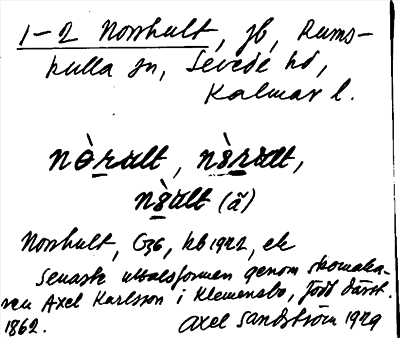 1-2 Norrhult, jb, Rums-
kulla sn, Sevede hd,
Kalmar l.
nòrult, nòrult,
nòult (ã)
Norrhult, G36, kb 1922, ek
Senaste uttalsformen genom skomaka-
ren Axel Karlsson i Klemensbo, född därst.
1862. Axel Sandström 1929